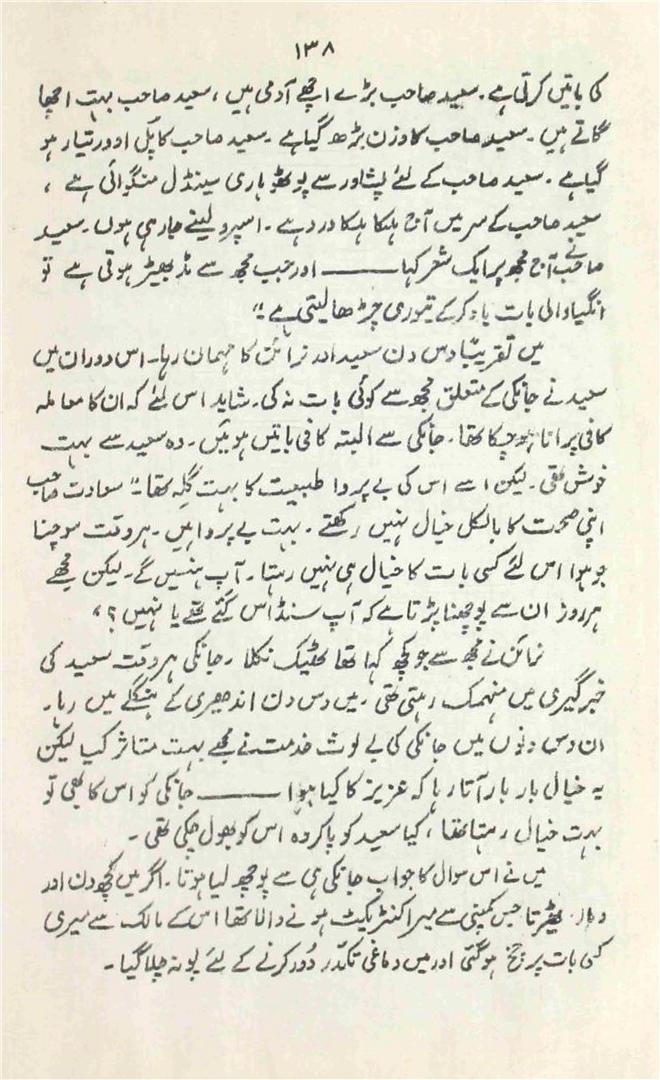 ۱۳۸
کی باتیں کرتی ہے۔ سعید صاحب بڑے اچھے آدمی ہیں، سعید صاحب بہت اچھا
گاتے ہیں۔ سعید صاحب کا وزن بڑھ گیا ہے۔ سعید صاحب کا پُل اوور تیار ہو
گیا ہے۔ سعید صاحب کے لئے پشاور سے پوٹھوہاری سینڈل منگوائی ہے،
سعید صاحب کے سر میں آج ہلکا ہلکا درد ہے۔ اسپرو لینے جا رہی ہوں۔ سعید
صاحب نے آج مجھ پر ایک شعر کہا ——— اور جب مجھ سے مڈبھیڑ ہوتی ہے تو
انگیا والی بات یاد کر کے تیوری چڑھا لیتی ہے۔"
میں تقریباً دس دن سعید اور نرائن کا مہمان رہا۔ اس دوران میں
سعید نے جانکی کے متعلق مجھ سے کوئی بات نہ کی۔ شاید اس لئے کہ ان کا معاملہ
کافی پرانا ہو چکا تھا۔ جانکی سے البتہ کافی باتیں ہوئیں۔ وہ سعید سے بہت
خوش تھی۔ لیکن اسے اس کی بے پروا طبیعت کا بہت گلہ تھا۔" سعادت صاحب
اپنی صحت کا بالکل خیال نہیں رکھتے۔ بہت بے پروا ہیں۔ ہر وقت سوچنا
جو ہوا اس لئے کسی بات کا خیال ہی نہیں رہتا۔ آپ ہنسیں گے۔ لیکن مجھے
ہر روز ان سے پوچھنا پڑتا ہے کہ آپ سنڈاس گئے تھے یا نہیں؟"
نرائن نے مجھ سے جو کچھ کہا تھا ٹھیک نکلا۔ جانکی ہر وقت سعید کی
خبر گیری میں منہمک رہتی تھی۔ میں دس دن اندھیری کے بنگلے میں رہا۔
ان دس دنوں میں جانکی کی بے لوث خدمت نے مجھے بہت متاثر کیا لیکن
یہ خیال بار بار آتا رہا کہ عزیز کا کیا ہوا ——— جانکی کو اس کا بھی تو
بہت خیال رہتا تھا، کیا سعید کو پا کر وہ اس کو بھول چکی تھی۔
میں نے اس سوال کا جواب جانکی ہی سے پوچھ لیا ہوتا۔ اگر میں کچھ دن اور
وہاں ٹھیرتا جس کمپنی سے میرا کنٹریکٹ ہونے والا تھا اس کے مالک سے میری
کسی بات پر چخ ہو گئی اور میں دماغی تکدّر دُور کرنے کے لئے پونہ چلا گیا۔